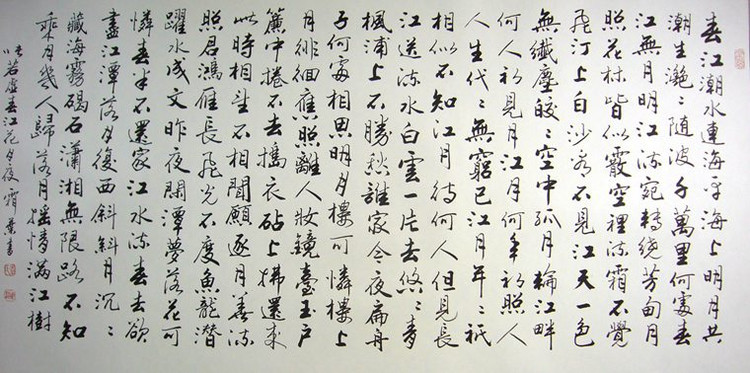 春江潮水連海平海上明月共
潮生灩〻随波千萬里何處春
江無月明江流宛轉繞芳甸月
照花林皆似霰空裡流霜不覺
飛汀上白沙看不見江天一色
無纖塵皎〻空中孤月輪江畔
何人初見月江月何年初照人
人生代〻無窮已江月年〻祇
相似不知江月待何人但見長
江送流水白雲一片去悠〻青
楓浦上不勝愁誰家今夜扁舟
子何處相思明月樓可憐樓上
月徘徊應照離人妝鏡臺玉戶
簾中捲不去搗衣砧上拂還來
此時相望不相聞願逐月華流
照君鴻雁長飛光不度魚龍潛
躍水成文昨夜閒潭夢落花可
憐春半不還家江水流春去欲
盡江潭落月復西斜斜月沉〻
藏海霧碣石瀟湘無限路不知
乘月幾人歸落月搖情滿江樹
张若虛春江花月夜 霜葉書